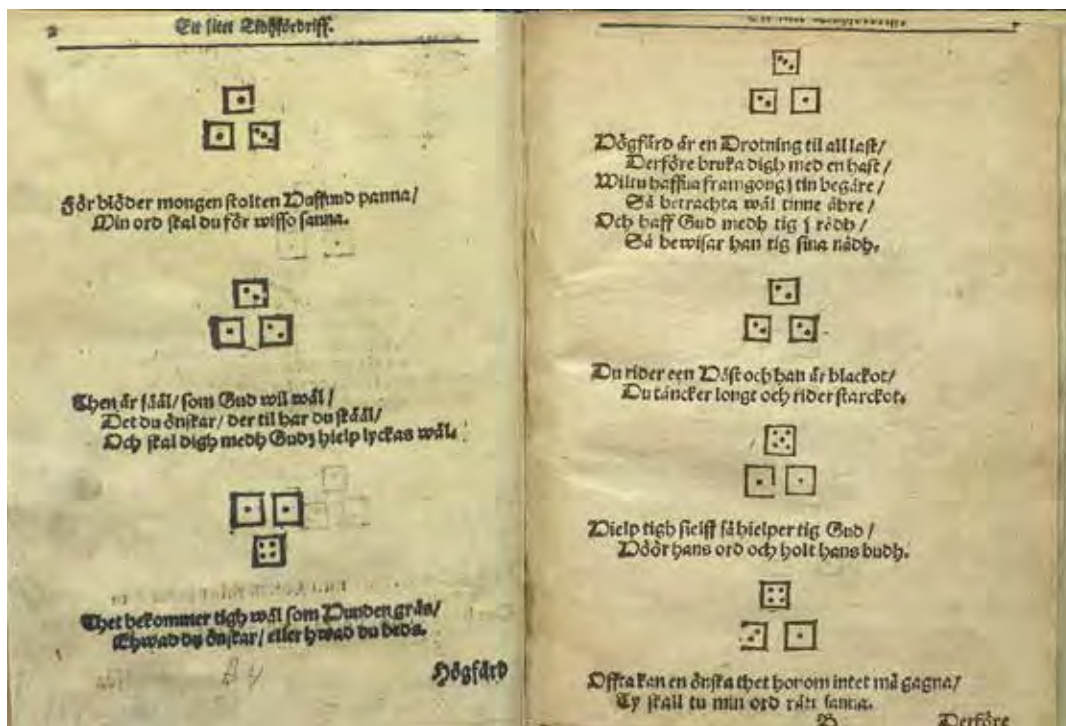 2 Ett litet Tidhfördriff.
För blöder mongen stolten Hoffund panna/
Min ord skal du för wisso sanna.
Then är sääl/ som Gud wil wäl/
Det du önskar/ der til har du skääl/
Och skal digh medh Gudz hielp lyckas wäl.
Thet bekommer tigh wäl som Hunden gräs/
Ehwad du önskar/ eller hwad du beds.
Högfärd
Ett litet Tidhfördriff.
Högfärd är en Drotning til all last/
Derföre bruka digh med en hast/
Wiltu haffua framgong j tin begäre/
Så betrachta wäl tinne ähre/
Och haff Gud medh tig j rådh/
Så bewisar han tig sina nådh.
Du rider een Häst och han är blackot/
Du täncker longt och rider starckot.
Hielp tigh sielff så hielper tig Gud/
Höör hans ord och holt hans budh.
Offta kan en önska thet honom intet må gagna/
Ty skall tu min ord rätt sanna.
B Derföre